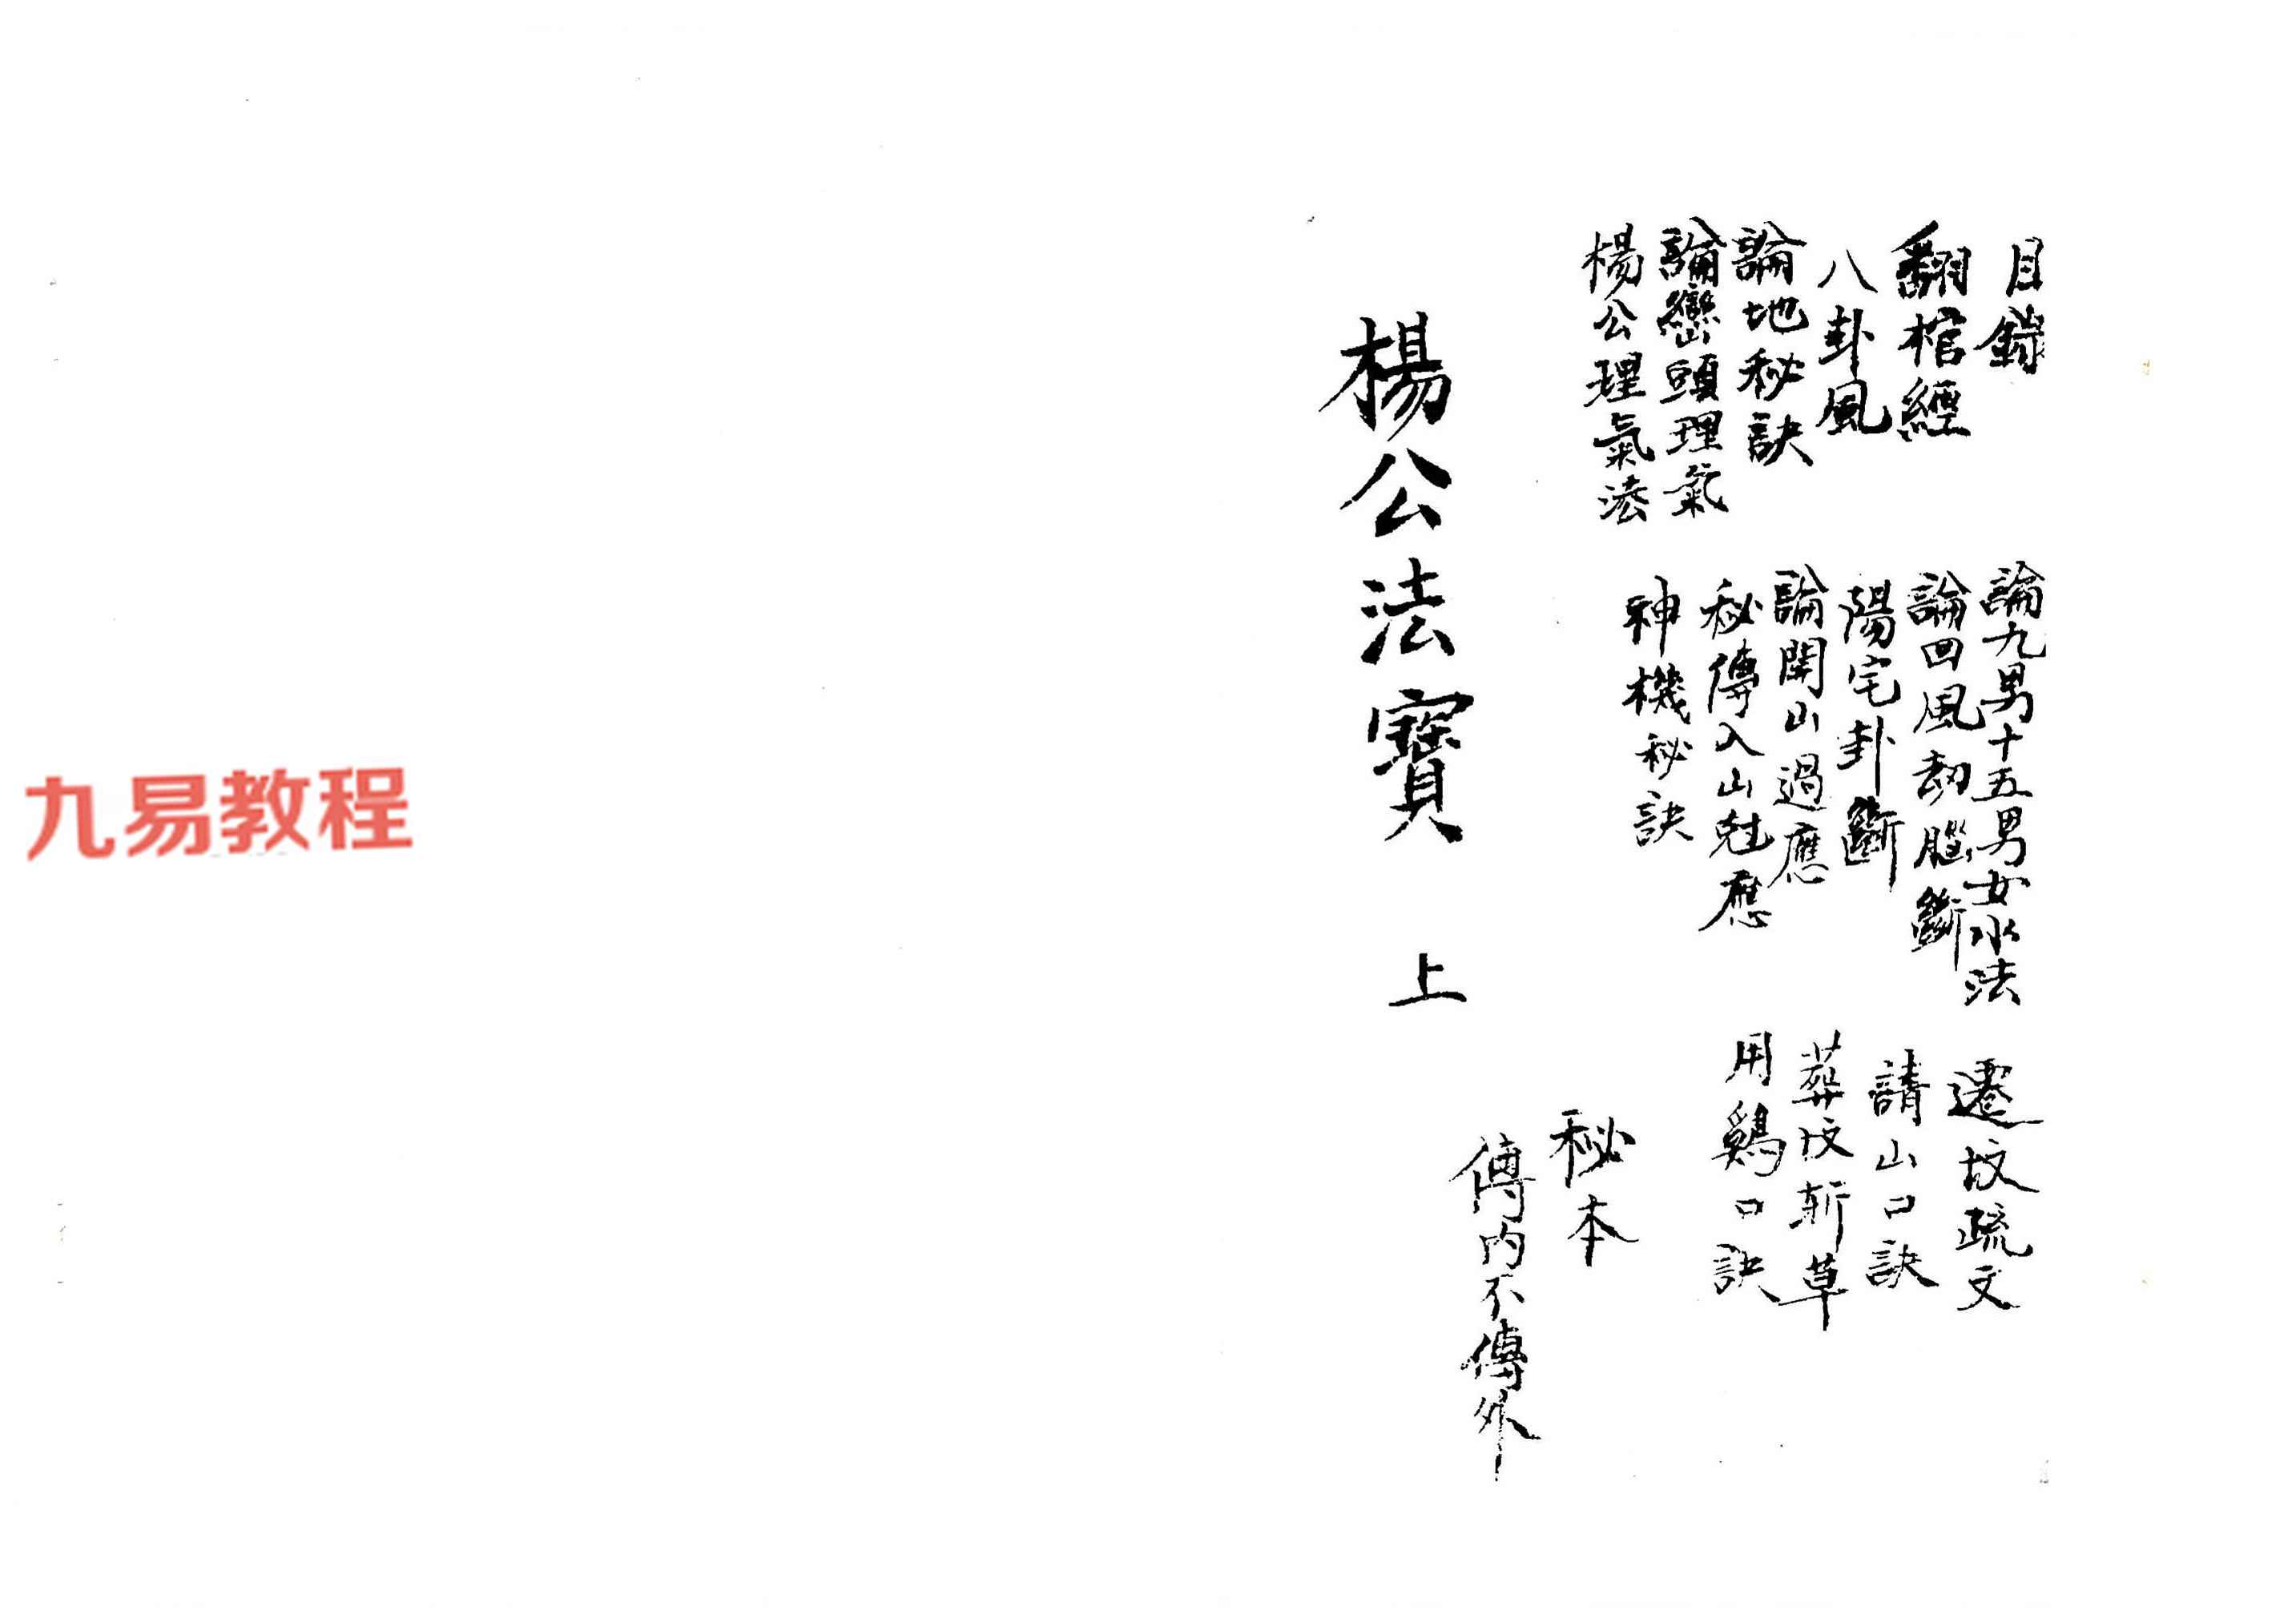 目錄
翻棺經
八卦風
論地秘訣
論巒頭理氣
楊公理氣法
論九男十五男女水法
論回風劫腦斷
陽宅卦斷
論開山過應
秘傳入山尅應
神機秘訣
遷坟疏文
請山口訣
葬坟斬草
用鷄口訣
秘本
傳内不傳外
楊公法寶 上
九易教程